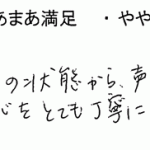 あまあ満足 ・やや
の状態から、声
心をとても丁寧に